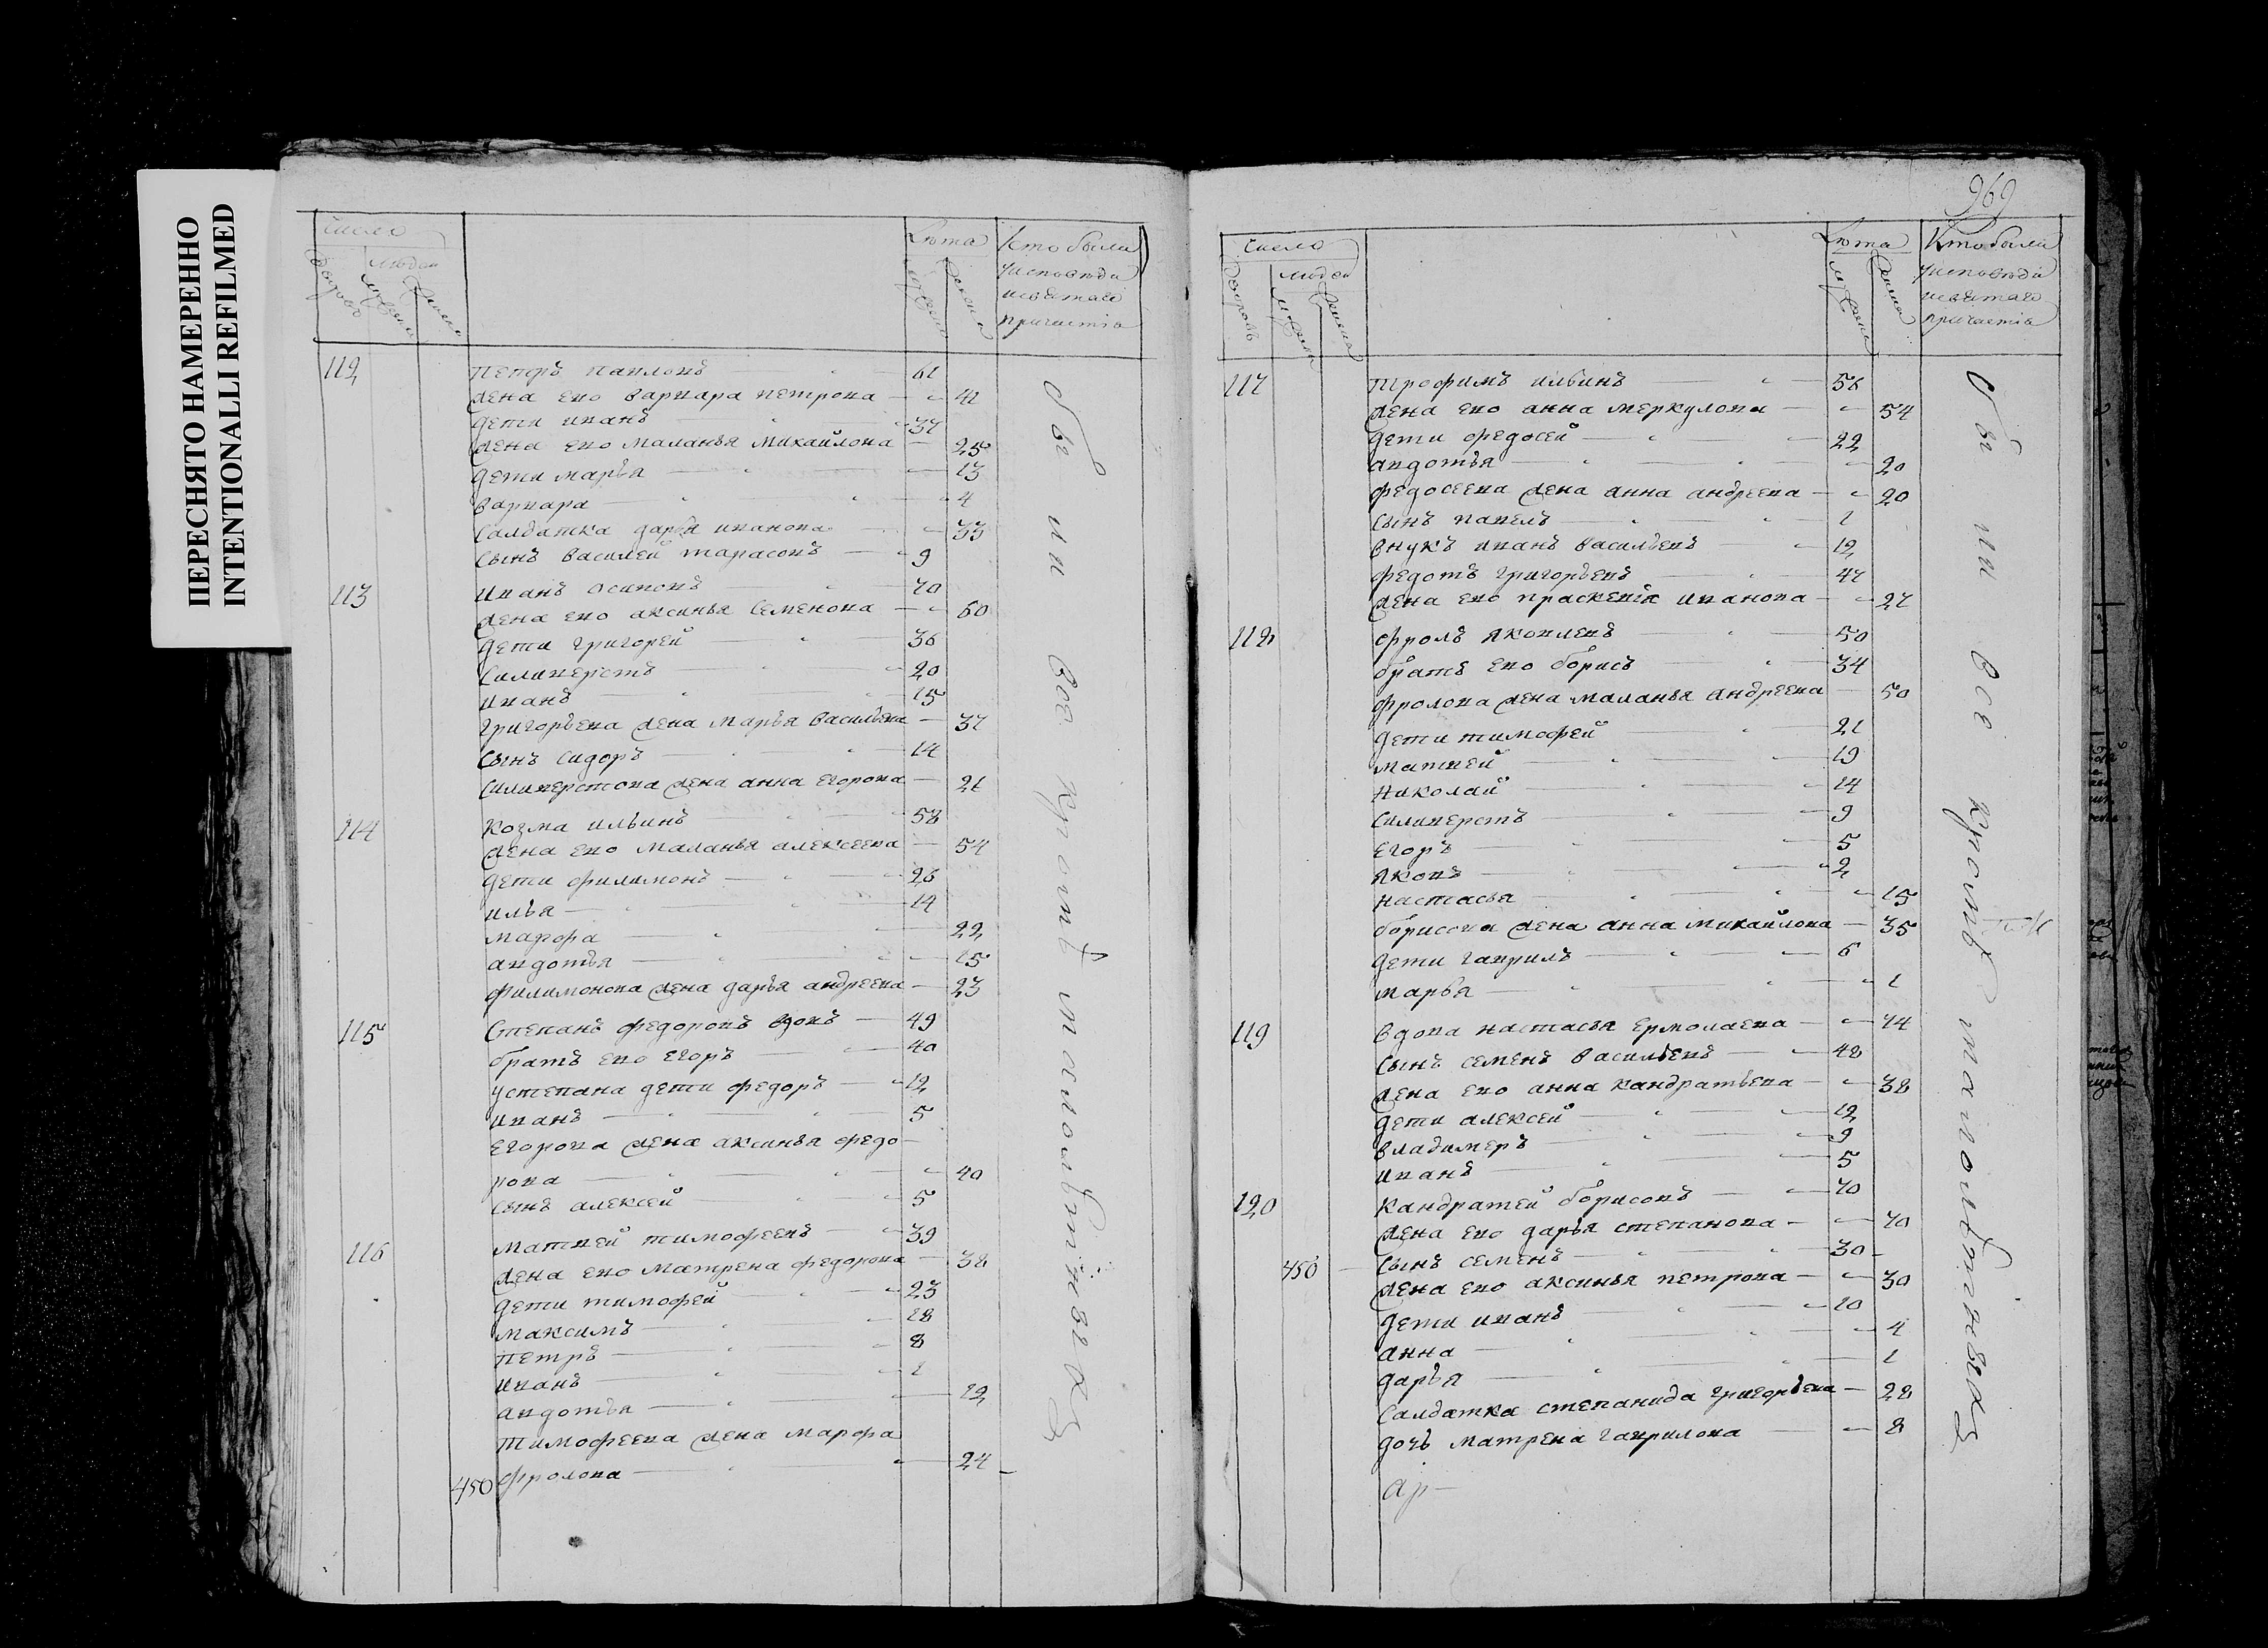 ПЕРЕСНЯТО НАМЕРЕННО
INTENTIONALLI REFILMED
число
дворовъ
людей
мужеска
женска
Лѣта
мужеска
женска
Кто были
уисповѣди
исвятаго
причастія
112 Петръ павловъ 61
жена ево варвара петрова 42
дети иванъ 37
жена ево маланья михайлова 25
дети марья 13
варвара 4
салдатка дарья иванова 33
сынъ василей тарасовъ 9
113 иванъ осиповъ 70
жена ево аксинья семенова 60
дети григорей 36
силиверстъ 20
иванъ 15
григорьева жена марья васильева 37
сынъ сидоръ 14
силиверстова жена анна егорова 21
114 козма ильинъ 58
жена ево маланья алексеева 54
дети филимонъ 26
илья 14
марфа 22
авдотья 15
филимонова жена дарья андреева 23
115 степанъ федоровъ вдовъ 49
братъ ево егоръ 40
устепана дети федоръ 12
иванъ 5
егорова жена аксинья федо
рова 40
сынъ алексей 5
116 матвей тимофеевъ 39
жена ево матрена федорова 38
дети тимофей 23
максимъ 18
петръ 8
иванъ 1
авдотья 12
тимофеева жена марфа
фролова 24
450
были все кромѣ
969
число
дворовъ
людей
мужеска
женска
Лѣта
мужеска
женска
Кто были
уисповѣди
исвятаго
причастія
117 трофимъ ильинъ 56
жена ево анна меркулова 54
дети федосей 22
авдотья 20
федосеева жена анна андреева 20
сынъ павелъ 1
внукъ иванъ васильевъ 12
федотъ григорьевъ 47
жена ево прасковія иванова 27
118 фролъ яковлевъ 50
братъ ево борисъ 34
фролова жена маланья андреева 50
дети тимофей 21
матвей 19
николай 14
силиверстъ 9
егоръ 5
яковъ 2
настасья 15
борисова жена анна михайлова 35
дети гаврилъ 6
марья 1
119 вдова настасья ермолаева 74
сынъ семенъ васильевъ 48
жена ево анна кандратьева 38
дети алексей 12
владимеръ 9
иванъ 5
120 кандратей борисовъ 70
жена ево дарья степанова 70
сынъ семенъ 30
450 жена ево аксинья петрова 30
дети иванъ 10
анна 4
дарья 1
салдатка степанида григорьева 28
дочь матрена гаврилова 8
ар
были все кромѣ